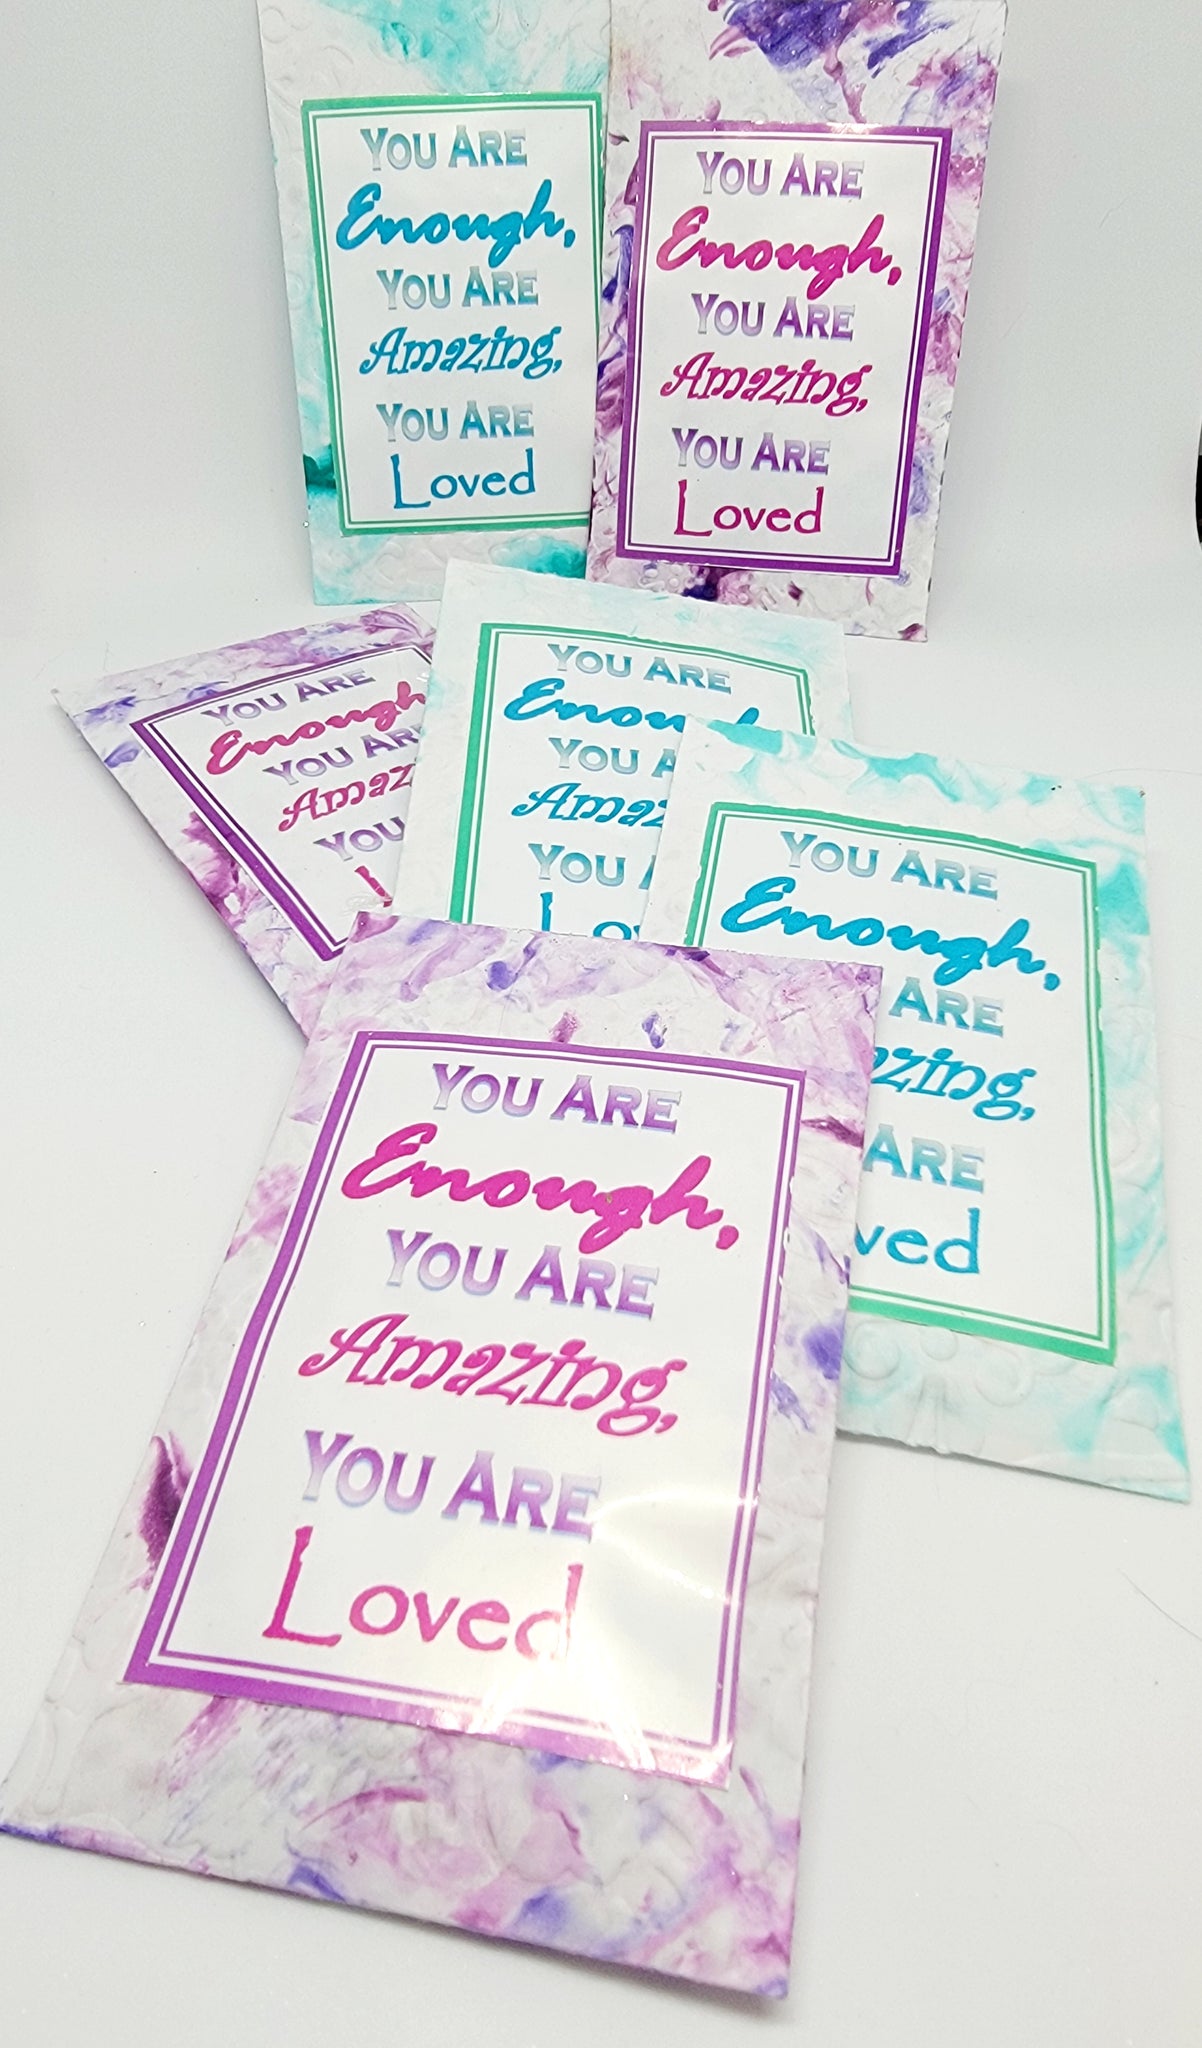 You Are
Enough,
You Are
Amazing,
You Are
Loved
You Are
Enough,
You Are
Amazing,
You Are
Loved
You Are
Enough
You Are
You
You Are
You
You Are
Enough,
Are
Are
You Are
Enough,
You Are
Amazing,
You Are
Loved